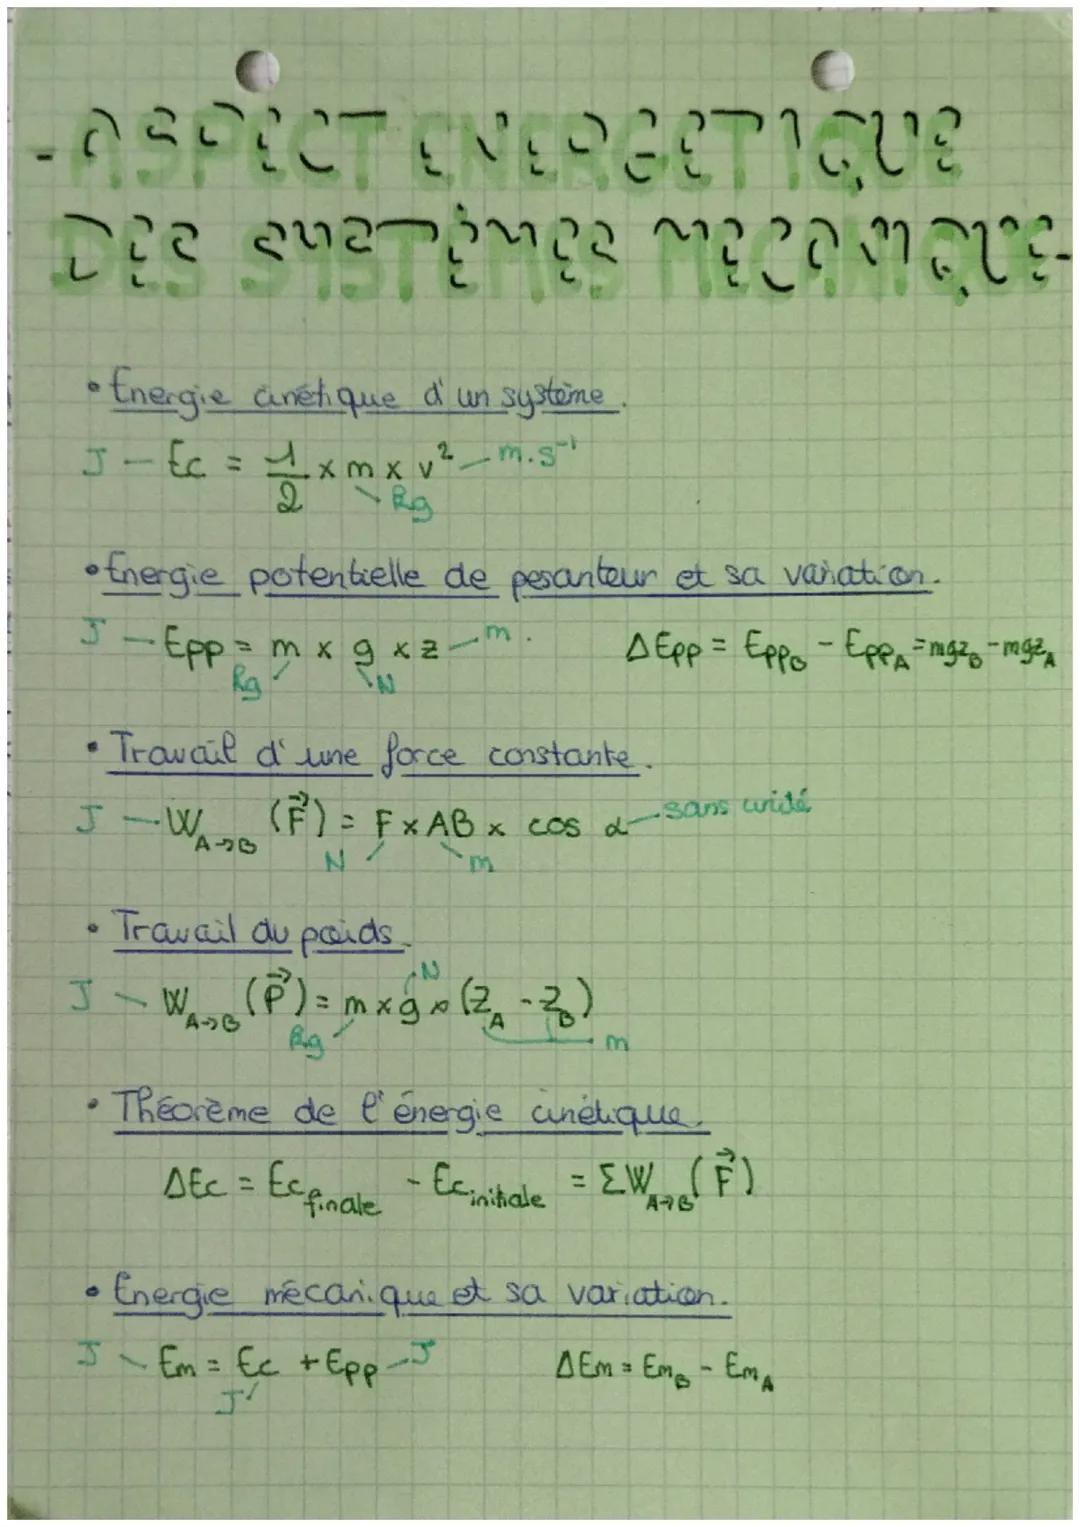 - ASPECT ENERGETIQUE
DES SYSTÈMES MECANIQUE-
• Energie cinétique d'un système.
J — Ec = 1/2 x m x v² — m.s⁻¹
Kg
• Energie potentielle de pesanteur et sa variation.
J — Epp = m x g x z — m. ΔEpp = Epp_B - Epp_A = mgz_B - mgz_A
Kg N
• Travail d'une force constante.
J — W_A→B (F⃗) = F x AB x cos α — sans unité
N m
• Travail du poids.
N
J — W_A→B (P⃗) = m x g x (z_A - z_B)
Kg m
• Théorème de l'énergie cinétique.
ΔEc = Ec_finale - Ec_initiale = ΣW_A→B (F⃗)
• Energie mécanique et sa variation.
J — Em = Ec + Epp — J ΔEm = Em_B - Em_A
J